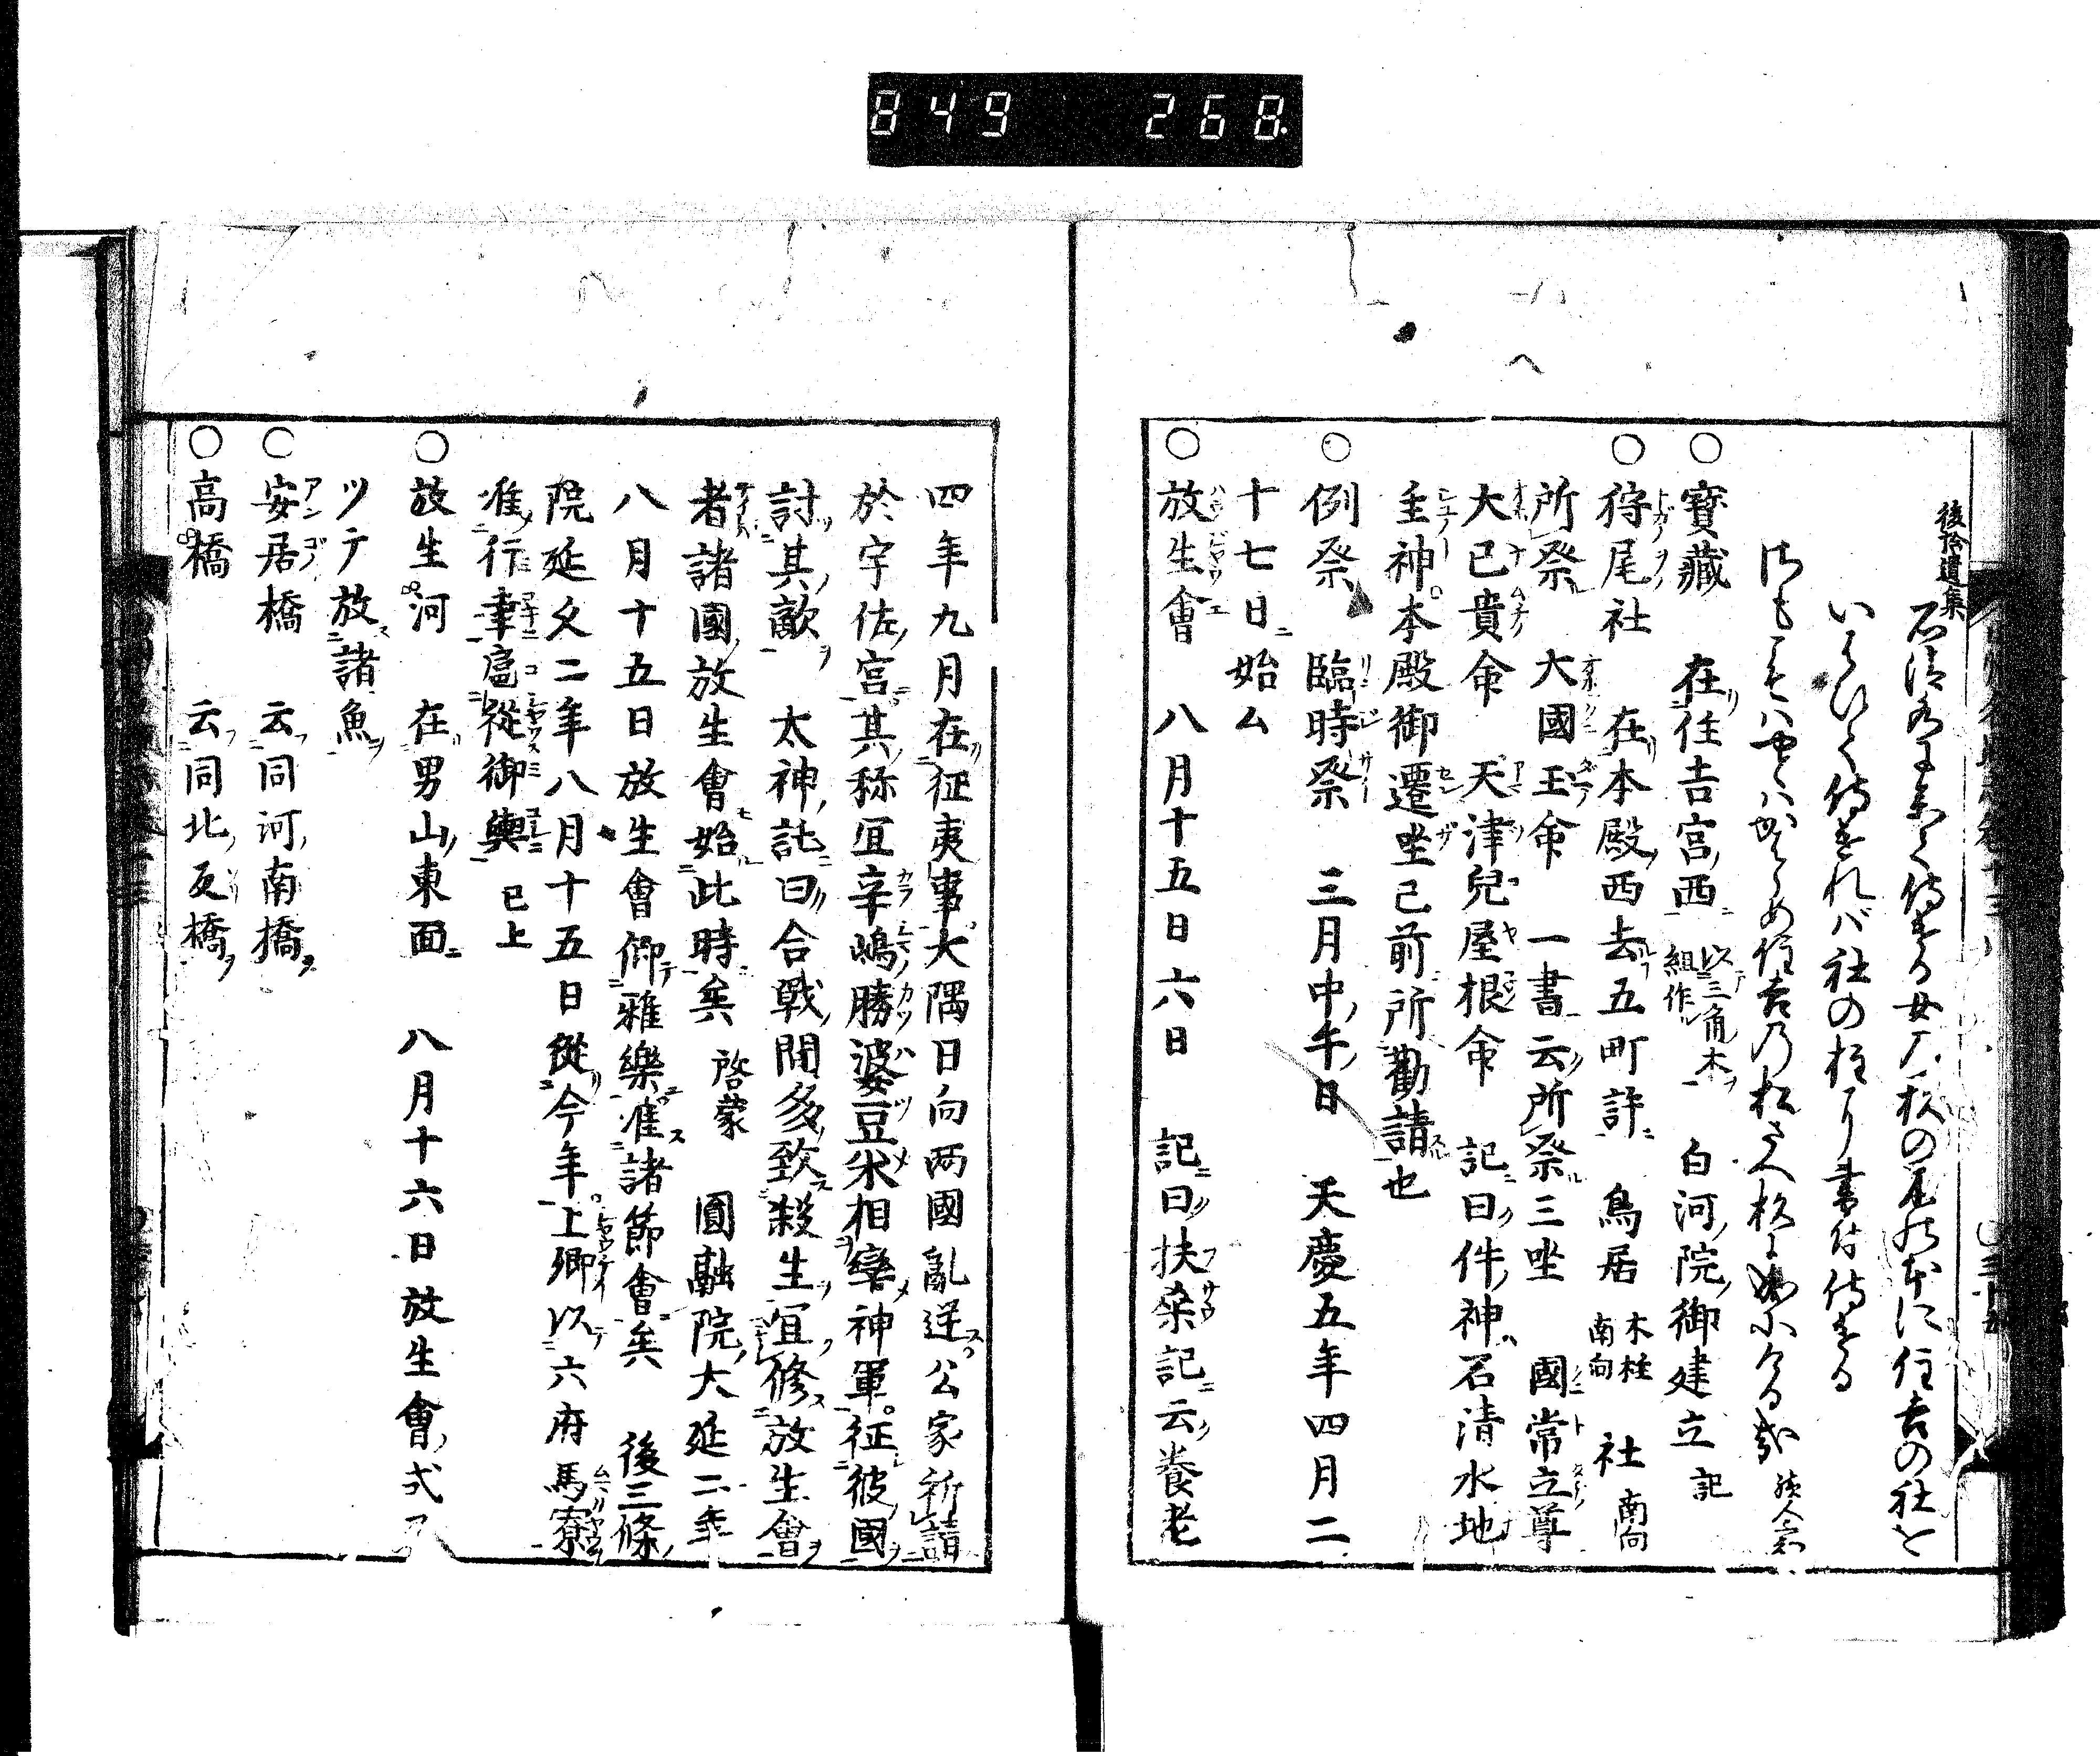 849 268
後拾遺集
石清水に参て侍ける女乃杉の木の本に住吉の社を
いはひて侍けれバ社の柱に書付侍ける
さもこそハやどハかはらめ住吉乃松さへ杉になりにける哉 読人不知
○寶藏 在住吉宮西 以三角木組作 白河院御建立 記
○狩尾社 在本殿西去五町許 鳥居 木柱南向 社 南向
所祭 大國玉命 一書云所祭三坐 國常立尊
大己貴命 天津兒屋根命 記曰件神石清水地
主神本殿御遷坐已前所勸請也
○例祭 臨時祭 三月中午日 天慶五年四月二
十七日始ム
○放生會 八月十五日六日 記曰扶桑記云養老
四年九月在征夷事大隅日向兩國亂逆公家祈請
於宇佐宮其称宜辛嶋勝婆豆米相率神軍征彼國
討其敵 太神託曰合戰間多致殺生宜修放生會
者諸國放生會始此時矣 啓蒙 圓融院大延二年
八月十五日放生會仰雅樂准諸節會矣 後三條
院延久二年八月十五日從今年上卿以六府馬寮
准行幸扈從御輿 已上
○放生河 在男山東面 八月十六日放生會式
ツテ放諸魚
○安居橋 云同河南橋
○高橋 云同北反橋